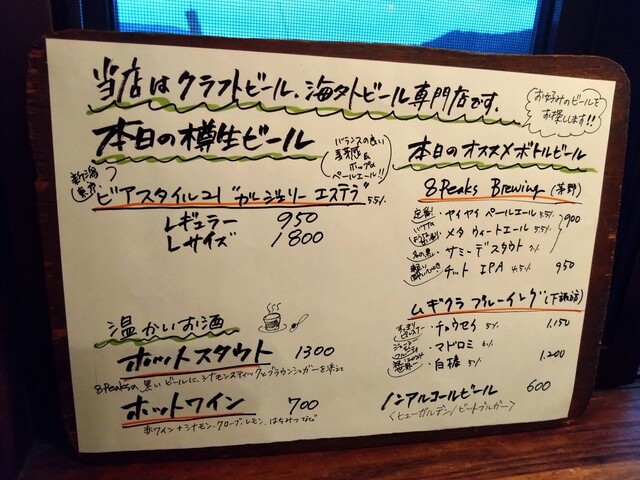 当店はクラフトビール、海外ビール専門店です。
お好みのビールを
お探しします!!
本日の樽生ビール
バランスの良い
麦芽感&
ホップの
ペールエール!!
ビアスタイル21"ガージェリー エステラ" 5.5%
レギュラー 950
Lサイズ 1800
温かいお酒
ホットスタウト 1300
8Peaksの黒いビールに、シナモンスティックとブラウンシュガーを添えて
ホットワイン 700
赤ワイン+シナモン、クローブ、レモン、はちみつなど
本日のオススメボトルビール
8Peaks Brewing (茅野)
定番! ・ヤイヤイ ペールエール 5.5% 900
・メタ ウィートエール 5.5%
・サミーデスタウト
・チット IPA 4.5% 950
ムギクラ ブルーイング (下諏訪)
・チュウセイ 5% 1,150
・マドロミ 6%
・白糖 5% 1.200
ノンアルコールビール 600
<ヒューガルデン/ビートブルガー>